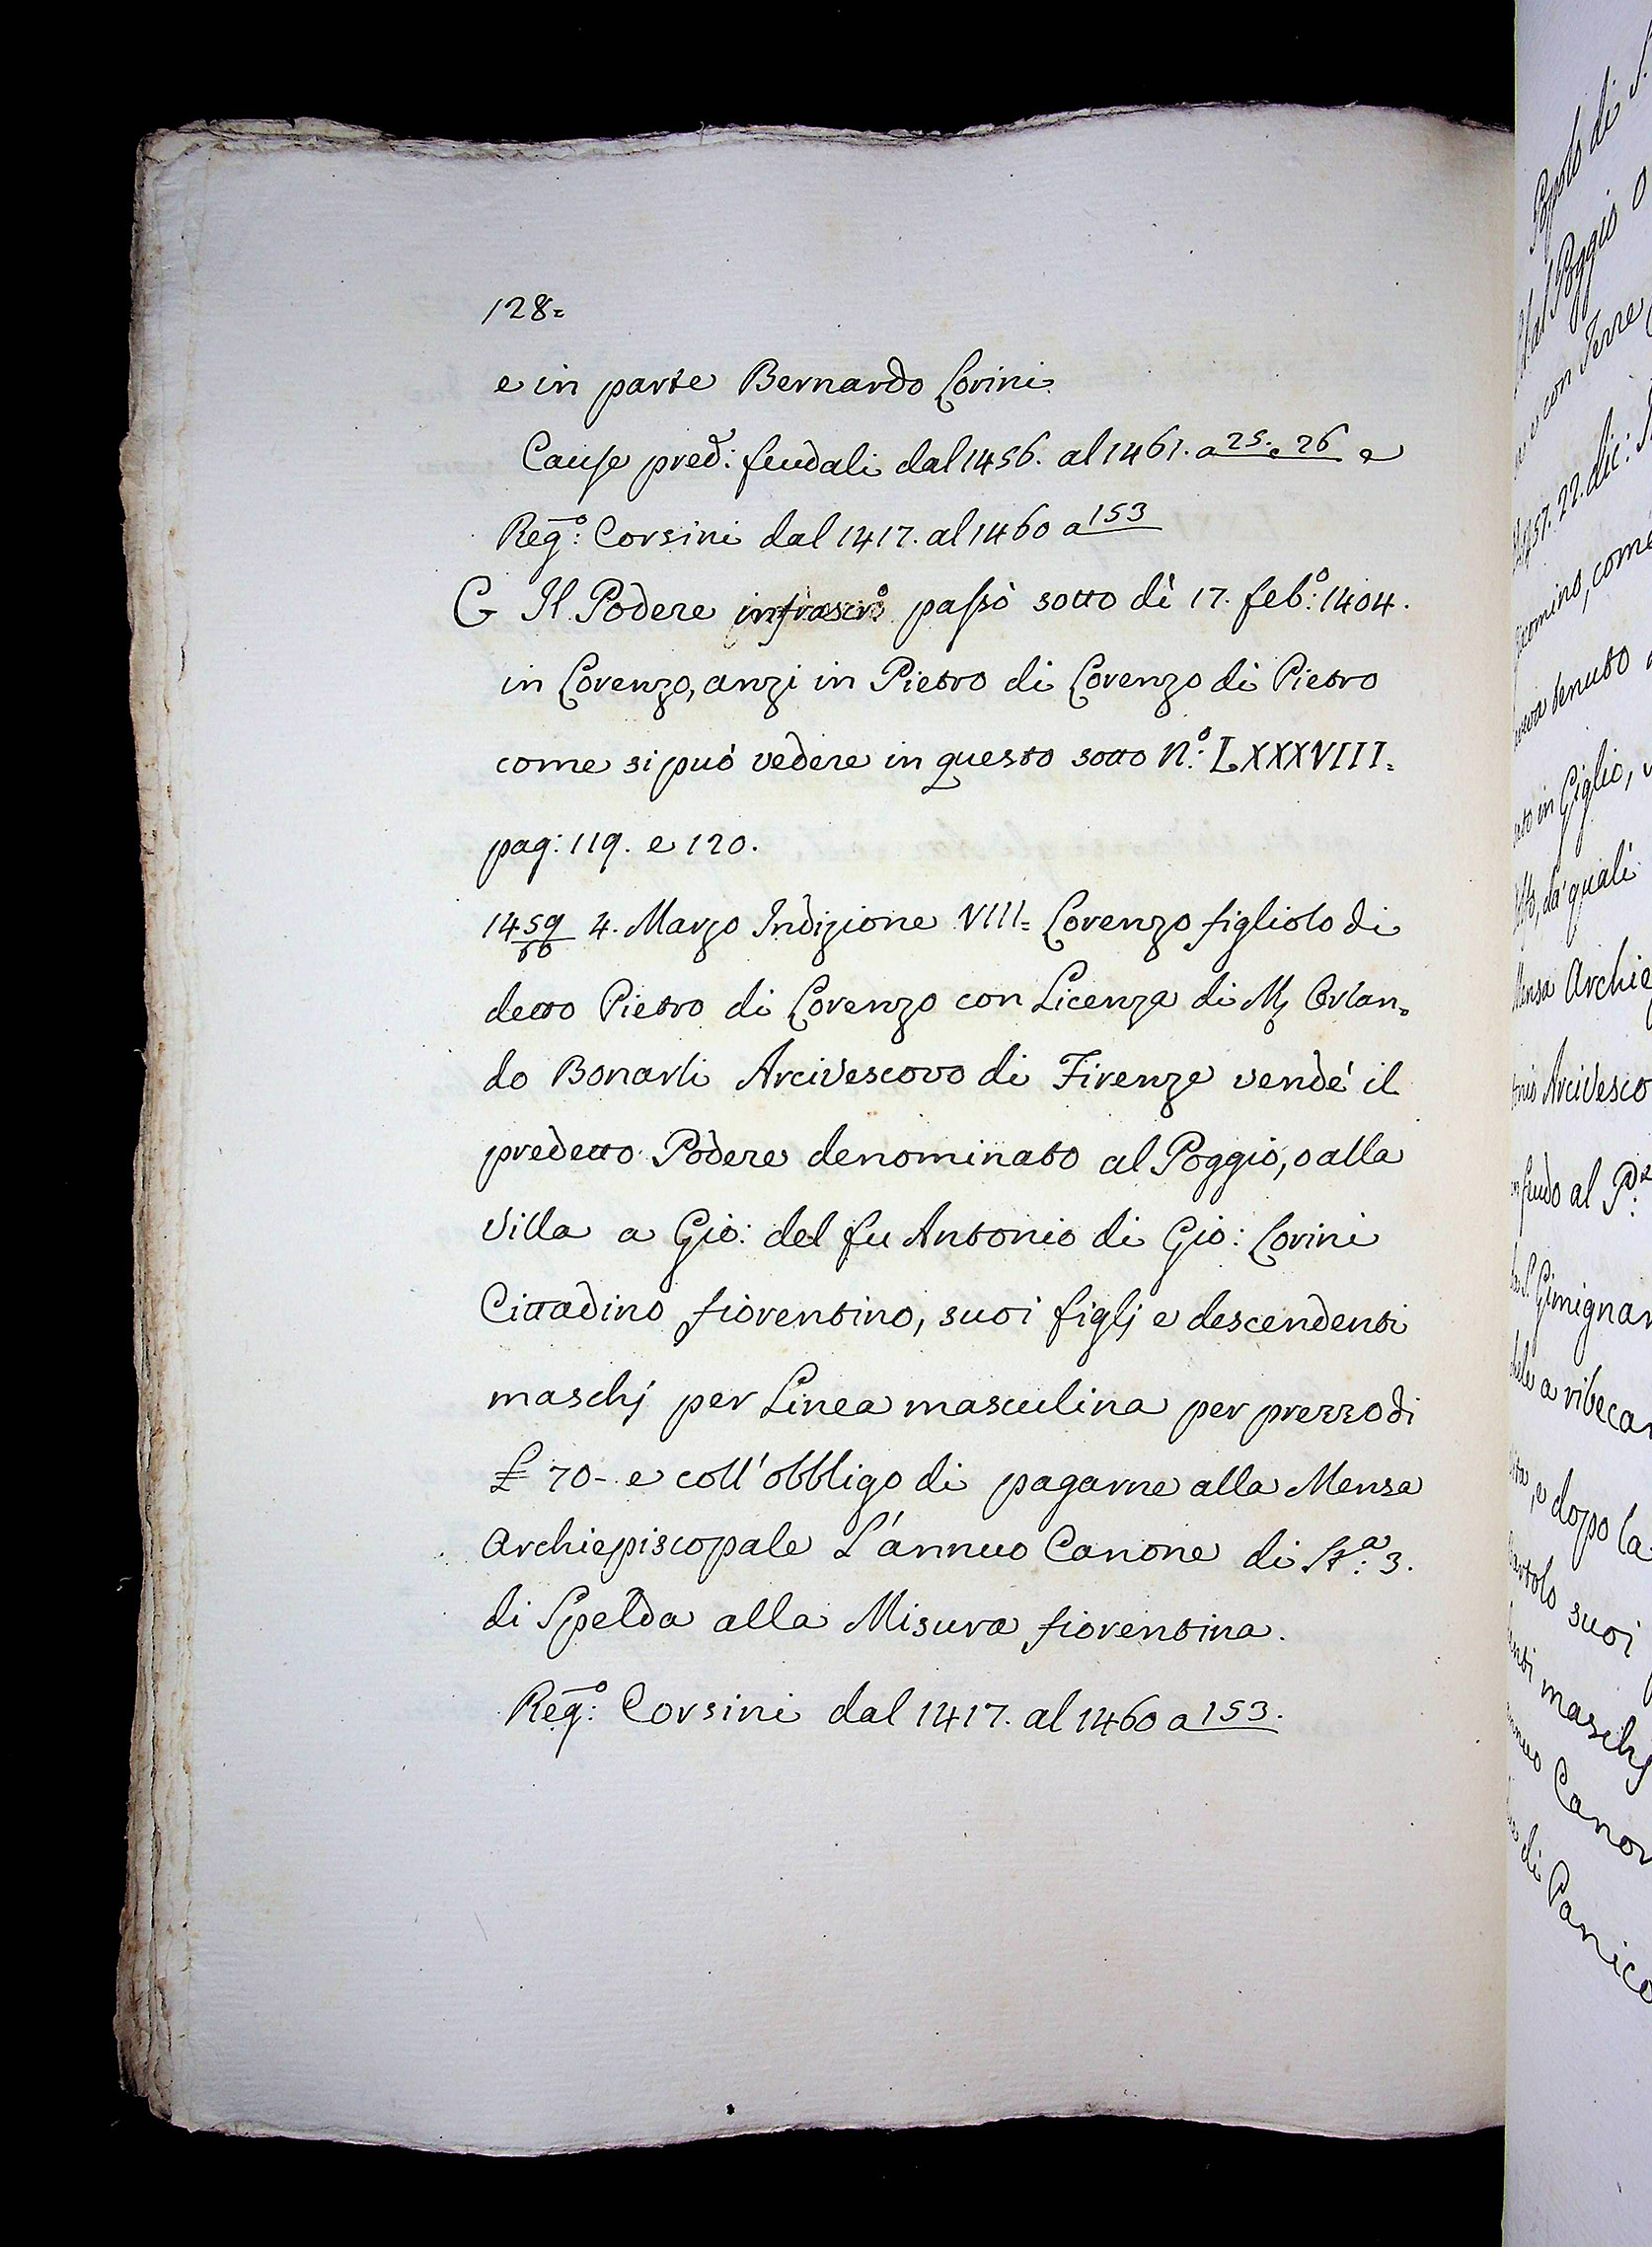 128=
e in parte Bernardo Lorini
Cause pred: feudali dal 1456. al 1461. a 25. e 26 e
Reg:o Corsini dal 1417. al 1460 a 153
G Il Podere infrascro passò sotto dì 17. feb:o 1404.
in Lorenzo, anzi in Pietro di Lorenzo di Pietro
come si può vedere in questo sotto N.o LXXXVIII.
pag: 119. e 120.
1459/60 4. Marzo Indizione VIII= Lorenzo figliolo di
detto Pietro di Lorenzo con Licenza di M Orlan=
do Bonarli Arcivescovo di Firenze vendé il
predetto Podere denominato al Poggio, o alla
Villa a Gio: del fu Antonio di Gio: Lorini
Cittadino fiorentino, suoi figlj e descendenti
maschj per Linea masculina per prezzo di
£ 70- e coll'obbligo di pagarne alla Mensa
Archiepiscopale L'annuo Canone di St:a 3.
di Spelda alla Misura fiorentina.
Reg:o Corsini dal 1417. al 1460 a 153.
Popolo di S.
al Poggio o
con Terre
57. 22. dic:
come
tenuto
in Giglio,
da' quali
Mensa Archie
Arcivesco
feudo al P:
Gimignan
a ribecar
e dopo la
suoi
maschj
Canon
di Panico